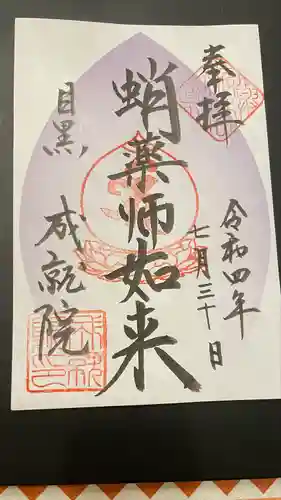 奉拝
令和四年
七月三十日
蛸薬师如来
目黒 成就院